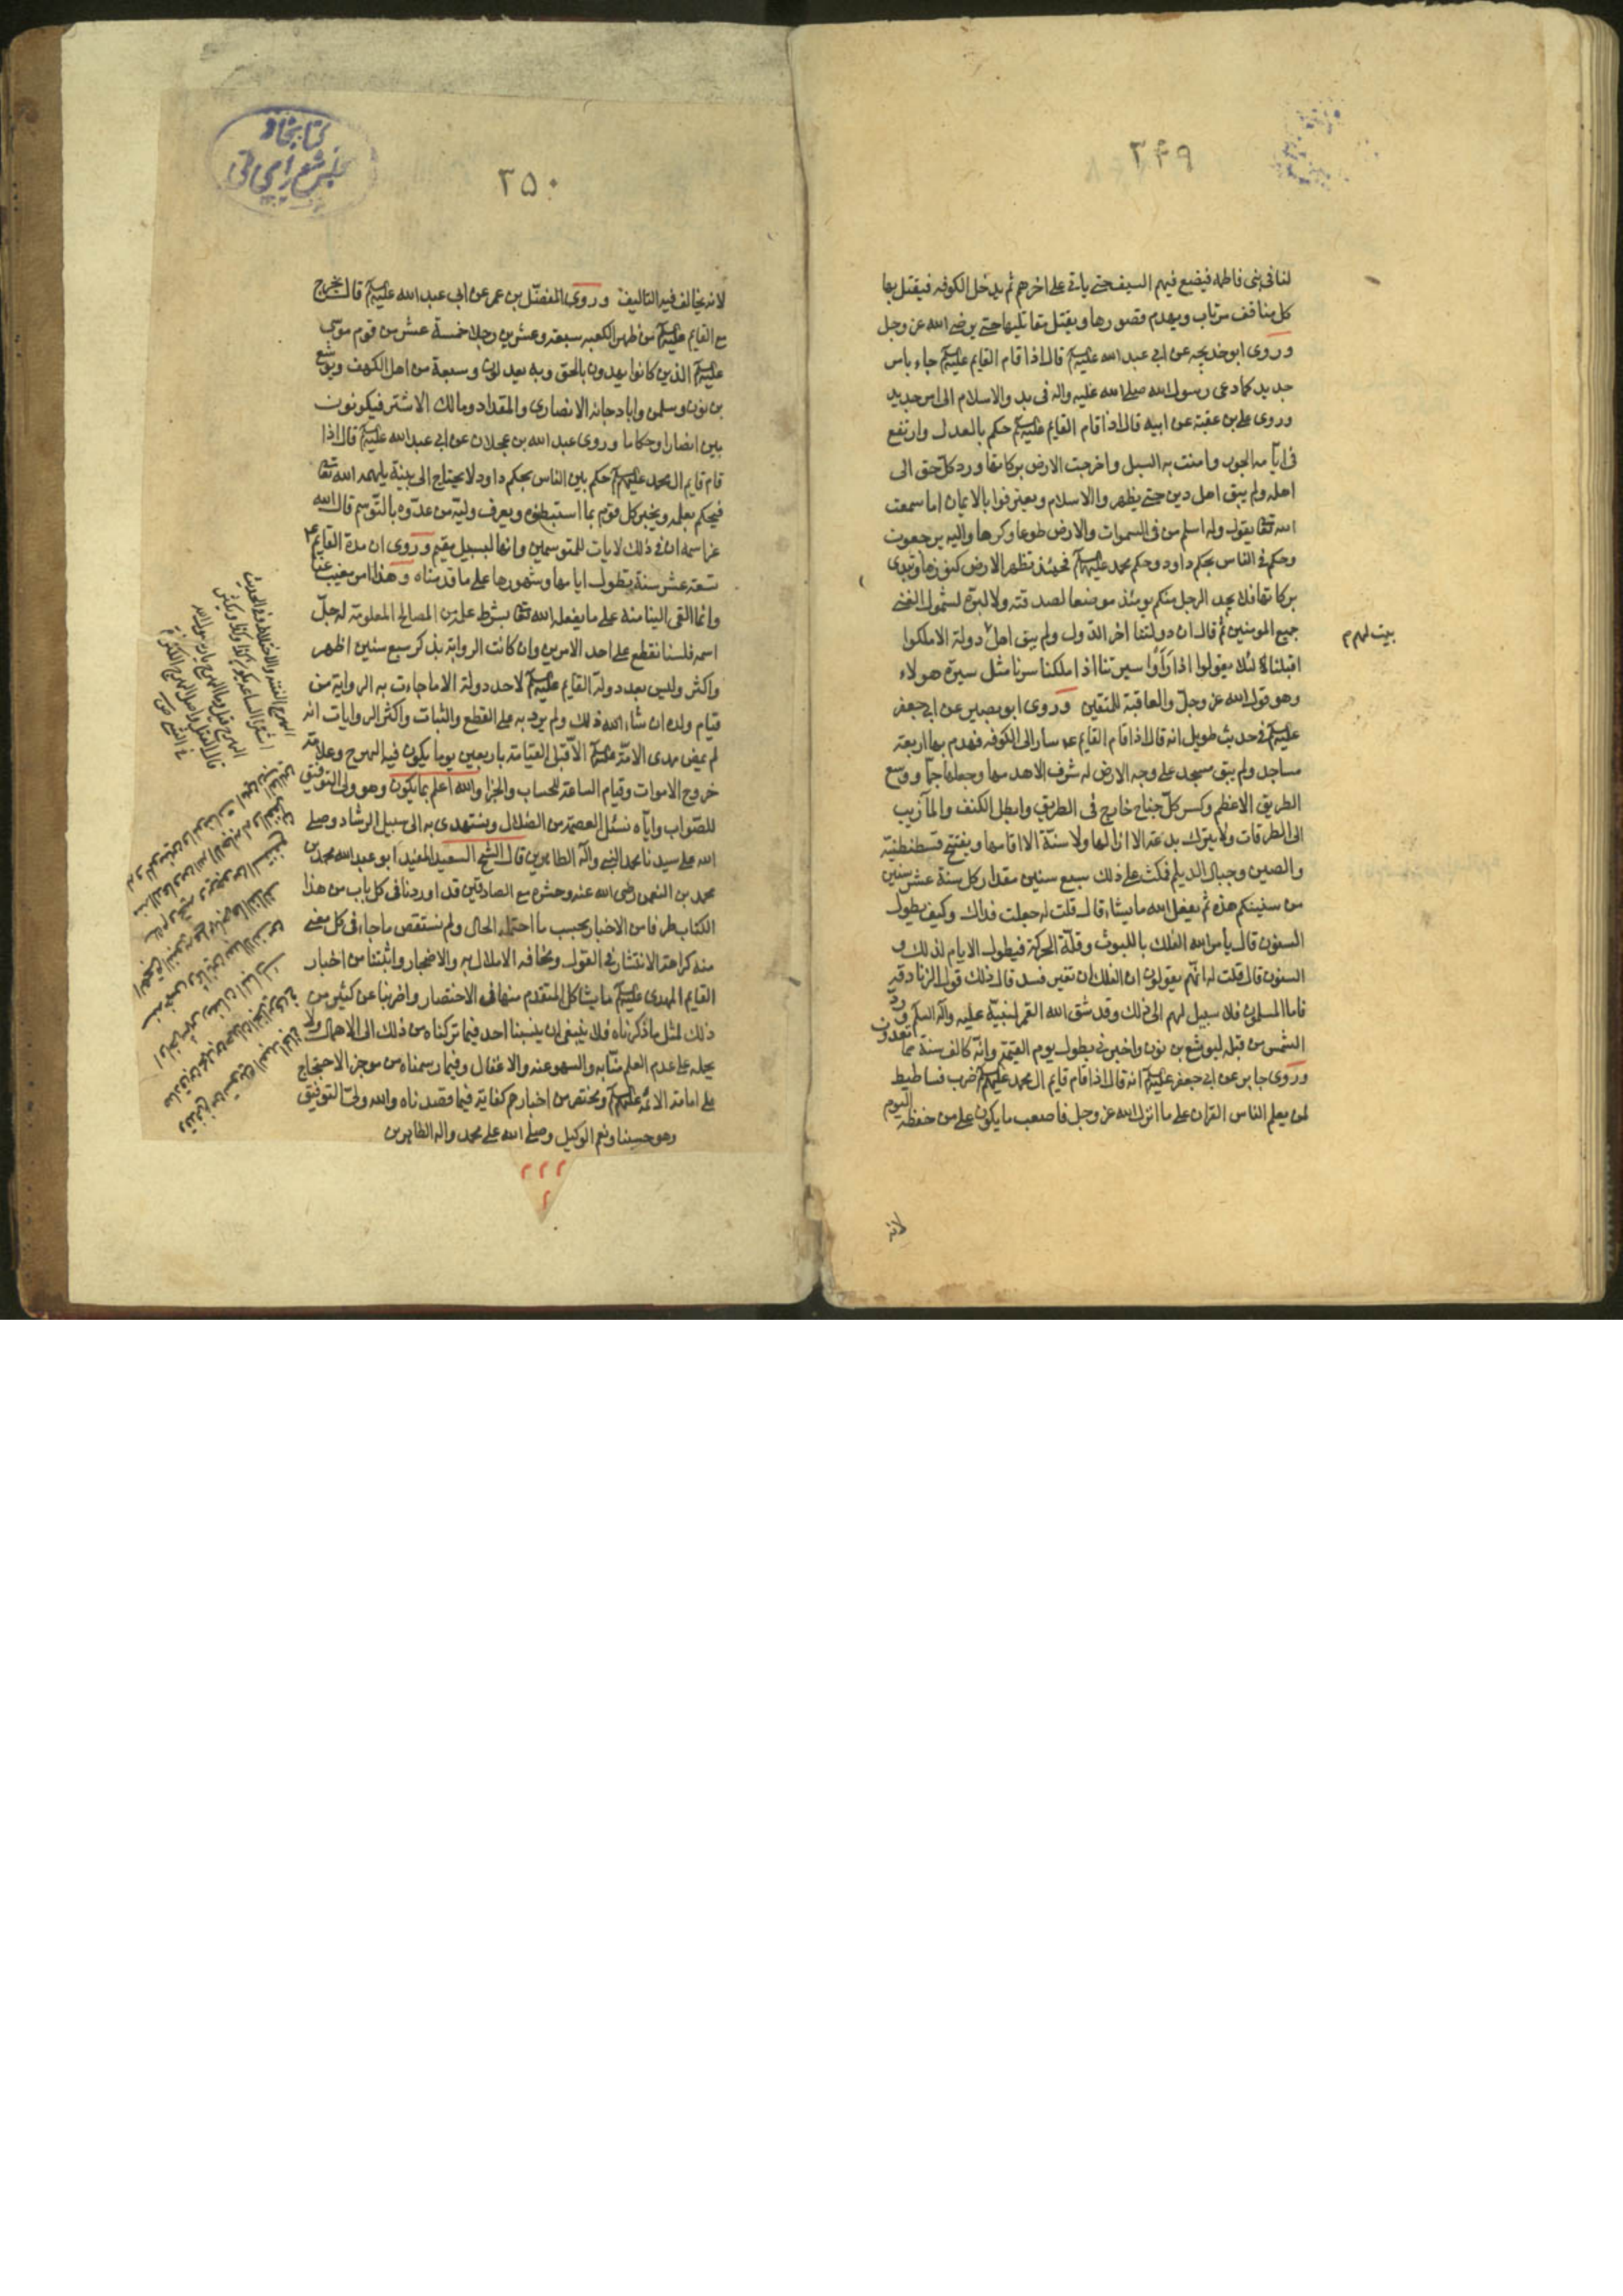 ٣۴٩
لنا فى بنى فاطمه فيضع فيهم السيف حتى ياتى على اخرهم ثم يدخل الكوفه فيقتل بها
كل منافق مرتاب ويهدم قصورها ويقتل مقاتليها حتى يرضى الله عز وجل
وروى ابو خديجه عن ابى عبد الله عليه السلم قال اذا قام القايم عليه السلم جاء بامر
جديد كما دعى رسول الله صلى الله عليه واله فى بدو الاسلام الى امر جديد
وروى على بن عقبة عن ابيه قال اذا قام القايم عليه السلم حكم بالعدل وارتفع
فى ايامه الجور وامنت به السبل واخرجت الارض بركاتها ورد كل حق الى
اهله ولم يبق اهل دين حتى يظهروا الاسلام ويعترفوا بالايمان اما سمعت
الله تعالى يقول وله اسلم من فى السموات والارض طوعا وكرها واليه يرجعون
وحكم فى الناس بحكم داود وحكم محمد عليهم السلم فحينئذ تظهر الارض كنوزها وتبدى
بركاتها فلا يجد الرجل منكم يومئذ موضعا لصدقته ولا لبره لشمول الغنى
جميع المومنين ثم قال ان دولتنا اخر الدول ولم يبق اهل دولة الا ملكوا
بيت لهم م
اقبلنا لئلا يقولوا اذا راوا سيرتنا اذا ملكنا سرنا مثل سيرة هولاء
وهو قول الله عز وجل والعاقبة للمتقين وروى ابو بصير عن ابى جعفر
عليه السلم فى حديث طويل انه قال اذا قام القايم سار الى الكوفه فهدم بها اربعة
مساجد ولم يبق مسجد على وجه الارض له شرف الا هدمها وجعلها جما ووسع
الطريق الاعظم وكسر كل جناح خارج فى الطريق وابطل الكنف والمآزيب
الى الطرقات ولا يترك بدعة الا ازالها ولا سنة الا اقامها ويفتح قسطنطنية
والصين وجبال الديلم فمكث على ذلك سبع سنين مقدار كل سنة عشر سنين
من سنينكم هذه ثم يفعل الله ما يشاء قال قلت له جعلت فداك وكيف يطول
السنون قال يأمر الله الفلك باللبوث وقلة الحركة فيطول الايام لذلك و
السنون قال قلت له انهم يقولون ان الفلك ان تغير فسد قال ذلك قول الزنادقة
فاما المسلمون فلا سبيل لهم الى ذلك وقد شق الله القمر لنبيه عليه واله السلم ورد
الشمس من قبله ليوشع بن نون واخبر فى بطول يوم القيمة وانه كالف سنة مما تعدون
وروى جابر عن ابى جعفر عليه السلم انه قال اذا قام قايم ال محمد عليهم السلم ضرب فساطيط
لمن يعلم الناس القران على ما انزل الله عز وجل فاصعب ما يكون على من حفظه اليوم
لانه
٣۵٠
كتابخانه
مجلس شوراى ملى
لانه يخالف فيه التاليف وروى المفضل بن عمر عن ابى عبد الله عليه السلم قال يخرج
مع القايم عليه السلم من ظهر الكعبه سبعة وعشرين رجلا خمسة عشر من قوم موسى
عليه السلم الذين كانوا يهدون بالحق وبه يعدلون وسبعة من اهل الكهف ويوشع
بن نون وسلمن وابا دجانه الانصارى والمقداد ومالك الاشتر فيكونون
بين انصارا وحكاما وروى عبد الله بن عجلان عن ابى عبد الله عليه السلم قال اذا
قام قايم ال محمد عليهم السلم حكم بين الناس بحكم داود لا يحتاج الى بينة يلهمه الله تعالى
فيحكم بعلمه ويخبر كل قوم بما استبطنوه ويعرف وليه من عدوه بالتوسم قال الله
عز اسمه ان فى ذلك لايات للمتوسمين وانها لبسبيل مقيم وروى ان مدة القايم
تسعة عشر سنة يطول ايامها وشهورها على ما قدمناه وهذا امر مغيب عنا
وانما القى الينا منه على ما يفعله الله تعالى بشرط علمه من المصالح المعلومة له جل
اسمه فلسنا نقطع على احد الامرين وان كانت الرواية بذكر سبع سنين اظهر
واكثر وليس بعد دولة القايم عليه السلم لاحد دولة الا ما جاءت به الرواية من
قيام ولده ان شاء الله ذلك ولم يرد به على القطع والثبات واكثر الروايات انه
لم يمض مهدى الامة عليه السلم الا قبل القيامة باربعين يوما يكون فيه الهرج وعلامة
خروج الاموات وقيام الساعة للحساب والجزا والله اعلم بما يكون وهو ولى التوفيق
للصواب واياه نسئل العصمة من الضلال ونستهدى به الى سبيل الرشاد وصلى
الله على سيدنا محمد النبى واله الطاهرين قال الشيخ السعيد المفيد ابو عبد الله محمد بن
محمد بن النعمن رضى الله عنه وحشره مع الصادقين قد اوردنا فى كل باب من هذا
الكتاب طرفا من الاخبار بحسب ما احتمله الحال ولم نستقص ما جاء فى كل معنى
منه كراهة الانتشار فى القول ومخافة الاملال به والاضجار واثبتنا من اخبار
القايم المهدى عليه السلم ما يشاكل المتقدم منها فى الاختصار واضربنا عن كثير من
ذلك لمثل ما ذكرناه فلا ينبغى ان ينسبنا احد فيما تركناه من ذلك الى الاهمال ولا
يحمله على عدم العلم منا به والسهو عنه والاغفال وفيما رسمناه من موجز الاحتجاج
على امامة الائمة عليهم السلم ومختصر من اخبارهم كفاية فيما قصدناه والله ولى التوفيق
وهو حسبنا ونعم الوكيل وصلى الله على محمد واله الطاهرين